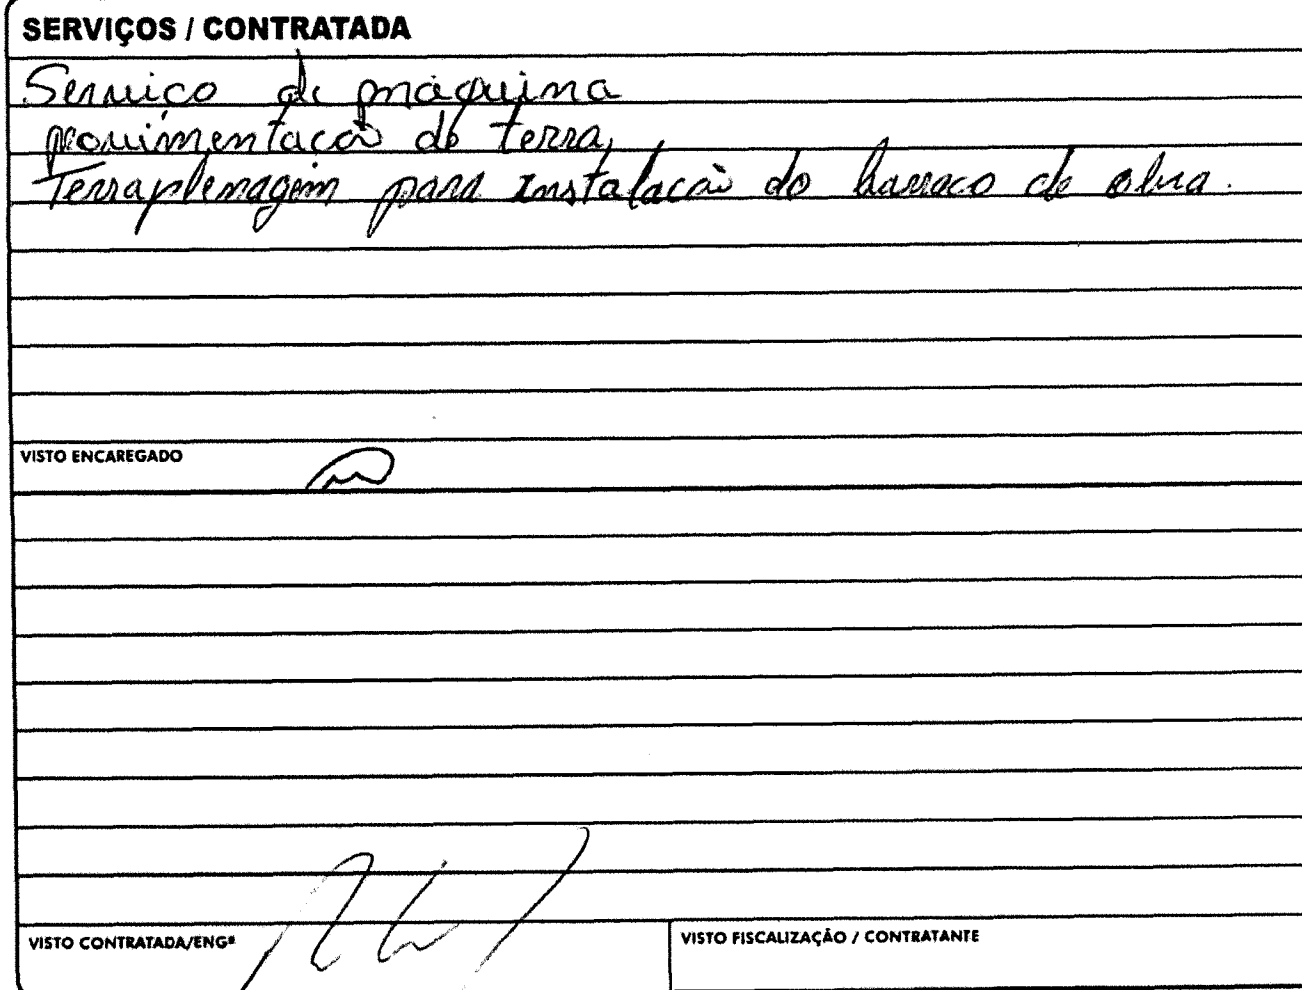 SERVIÇOS / CONTRATADA
Serviço de máquina
movimentacão de terra,
Terraplenagem para instalacão do barraco de obra.
VISTO ENCAREGADO
VISTO CONTRATADA/ENGª
VISTO FISCALIZAÇÃO / CONTRATANTE